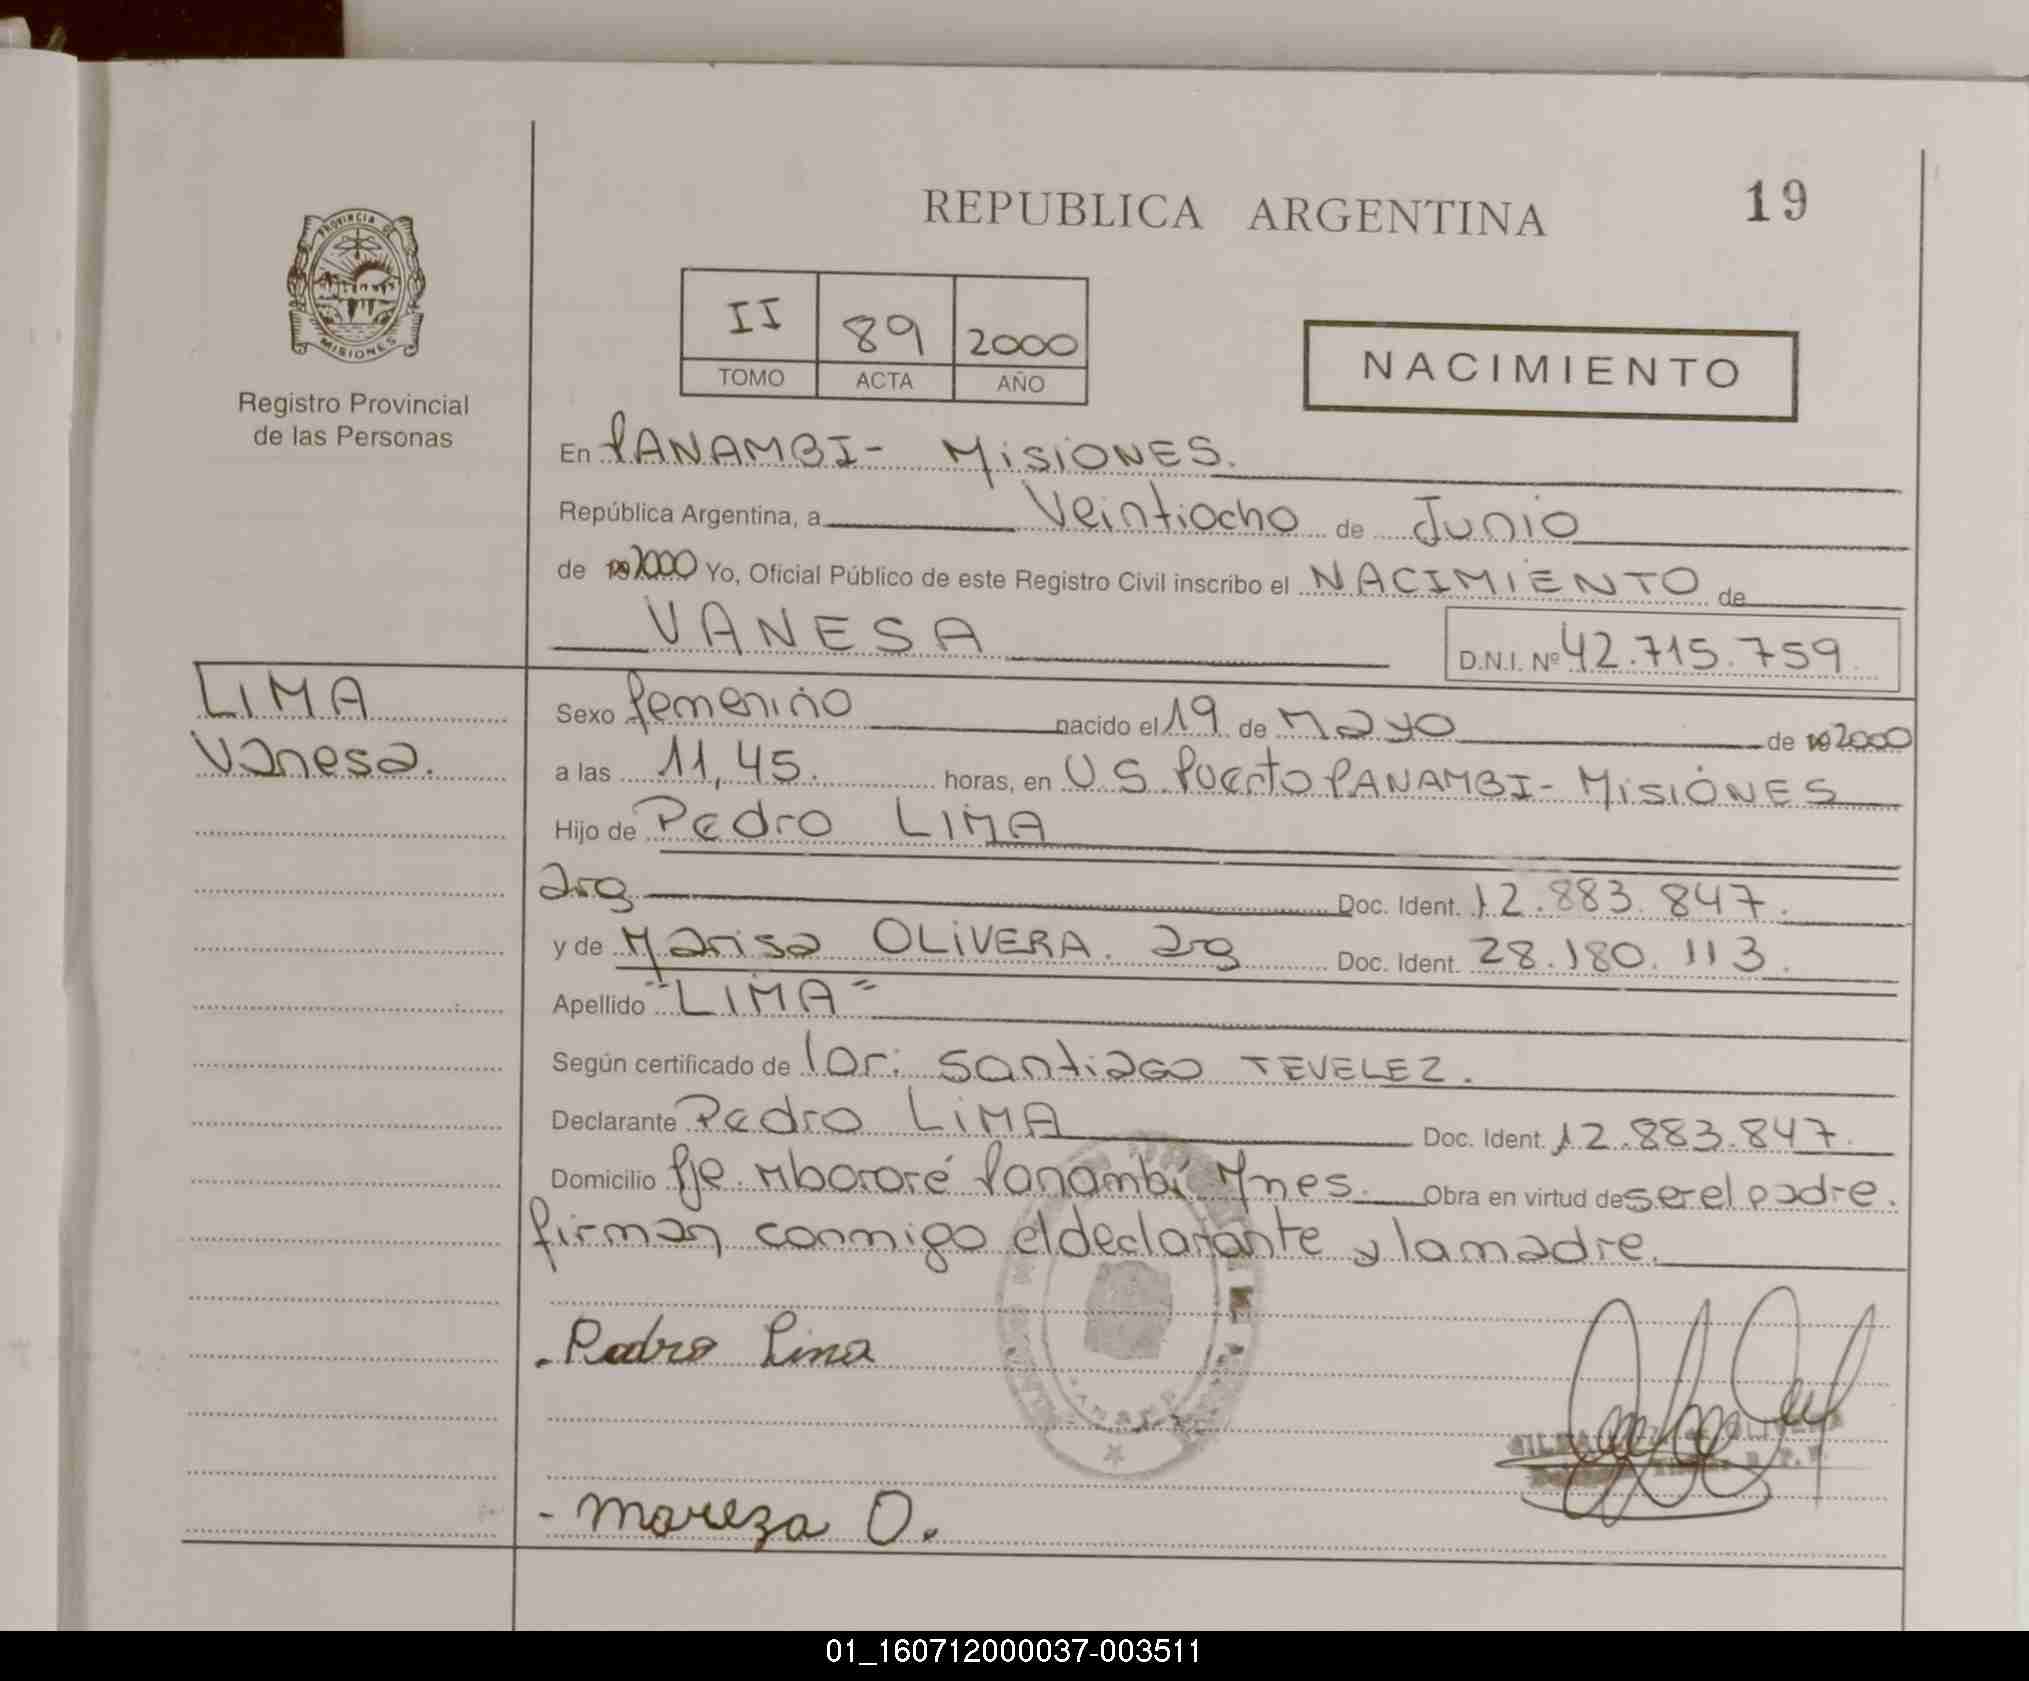 REPUBLICA ARGENTINA
19
PROVINCIA DE
MISIONES
Registro Provincial
de las Personas
II 89 2000
TOMO ACTA AÑO
NACIMIENTO
En PANAMBI - MISIONES.
República Argentina, a Veintiocho de Junio
de 2000 Yo, Oficial Público de este Registro Civil inscribo el NACIMIENTO de
VANESA D.N.I. Nº 42.715.759
LIMA
Vanesa.
Sexo femenino nacido el 19 de Mayo de 2000
a las 11,45. horas, en U.S. Puerto PANAMBI - MISIONES
Hijo de Pedro LIMA
arg Doc. Ident. 12.883.847.
y de Marisa OLIVERA. arg Doc. Ident. 28.180.113.
Apellido "LIMA"
Según certificado de Santiago TEVELEZ.
Declarante Pedro LIMA Doc. Ident. 12.883.847.
Domicilio Pje. Mbororé Panambí Mnes. Obra en virtud de ser el padre.
firman conmigo el declarante y la madre.
. Pedro Lima
- Mareza O.
01_160712000037-003511